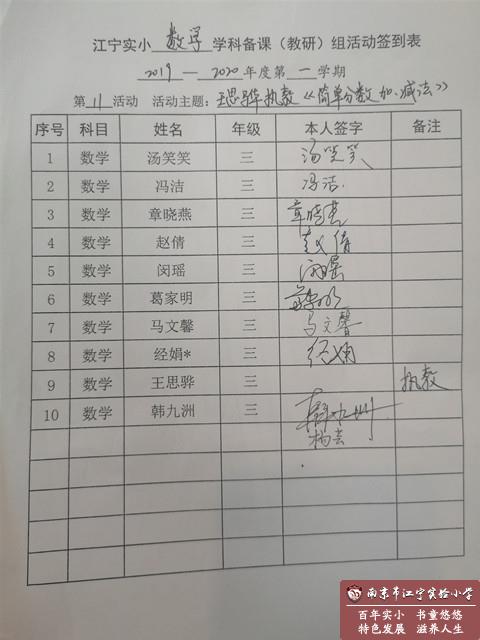 江宁实小 数学 学科备课（教研）组活动签到表
2019—2020年度第一学期
第 11 活动 活动主题：王思骅执教《简单分数加、减法》
序号 科目 姓名 年级 本人签字 备注
1 数学 汤笑笑 三 汤笑笑
2 数学 冯洁 三 冯洁
3 数学 章晓燕 三 章晓燕
4 数学 赵倩 三 赵倩
5 数学 闵瑶 三 闵瑶
6 数学 葛家明 三
7 数学 马文馨 三 马文馨
8 数学 经娟* 三 经娟
9 数学 王思骅 三 执教
10 数学 韩九洲 三 韩九洲
南京市江宁实验小学
百年实小 书童悠悠
特色发展 滋养人生